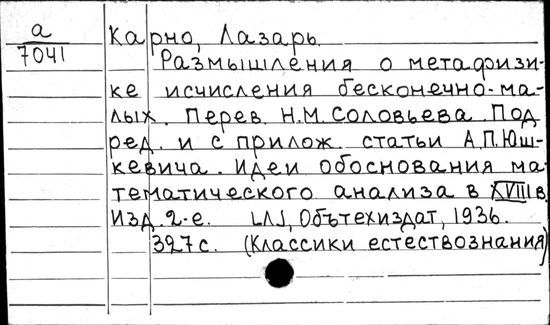 а
7041
Карно, Лазарь.
Размышления о метафизи-
ке исчисления бесконечно-ма-
лых. Перев. Н.М. Соловьева. Под
ред. и с прилож. статьи А.П. Юш-
кевича. Идеи обоснования ма-
тематического анализа в XVIII в.
Изд. 2-е. [Л], Обътехиздат, 1936.
327 с. (Классики естествознания)